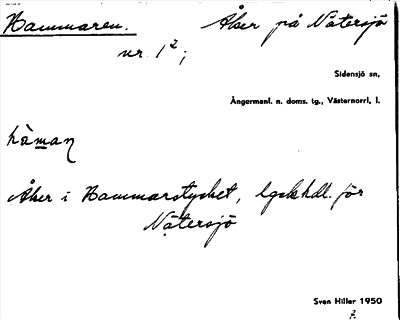 Hammaren. Åker på Nätersjö
nr. 1²;
Sidensjö sn,
Ångermanl. n. doms. tg., Västernorrl. l.
hàmaη
Åker i Hammarstycket, lgskhdl. för
Nätersjö
Sven Hiller 1950